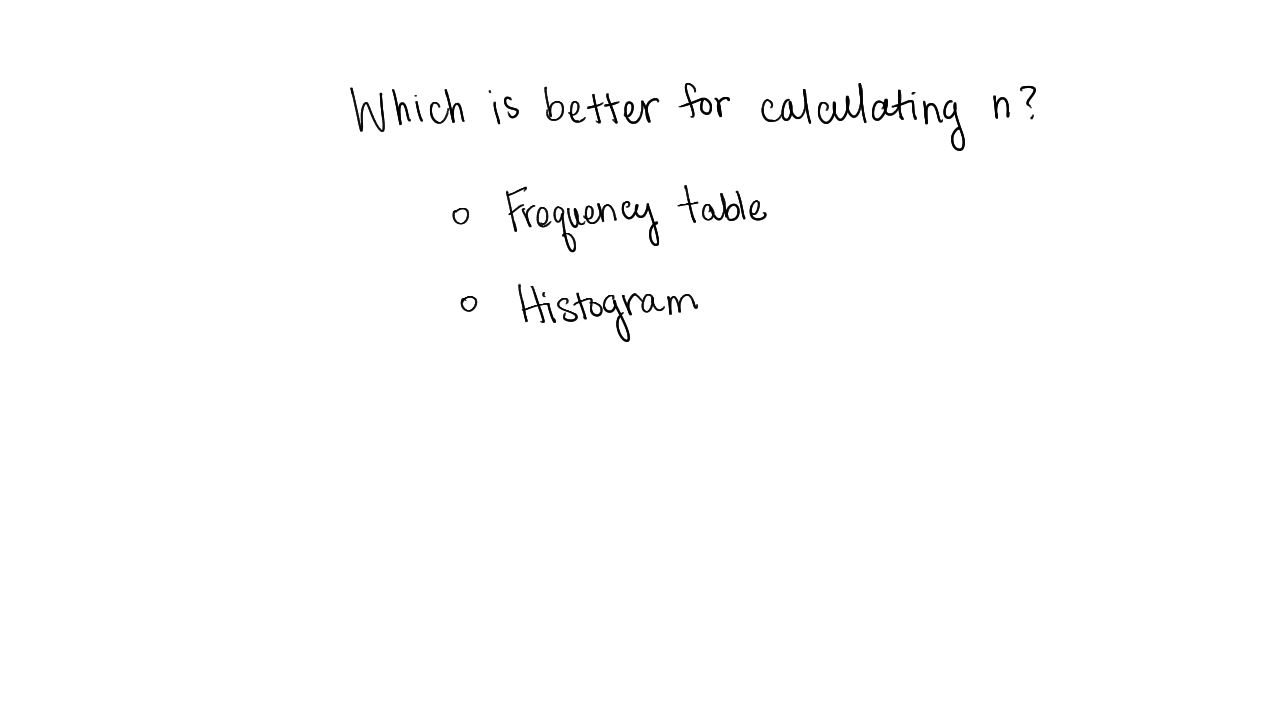 Which is better for calculating n?
○ Frequency table
○ Histogram